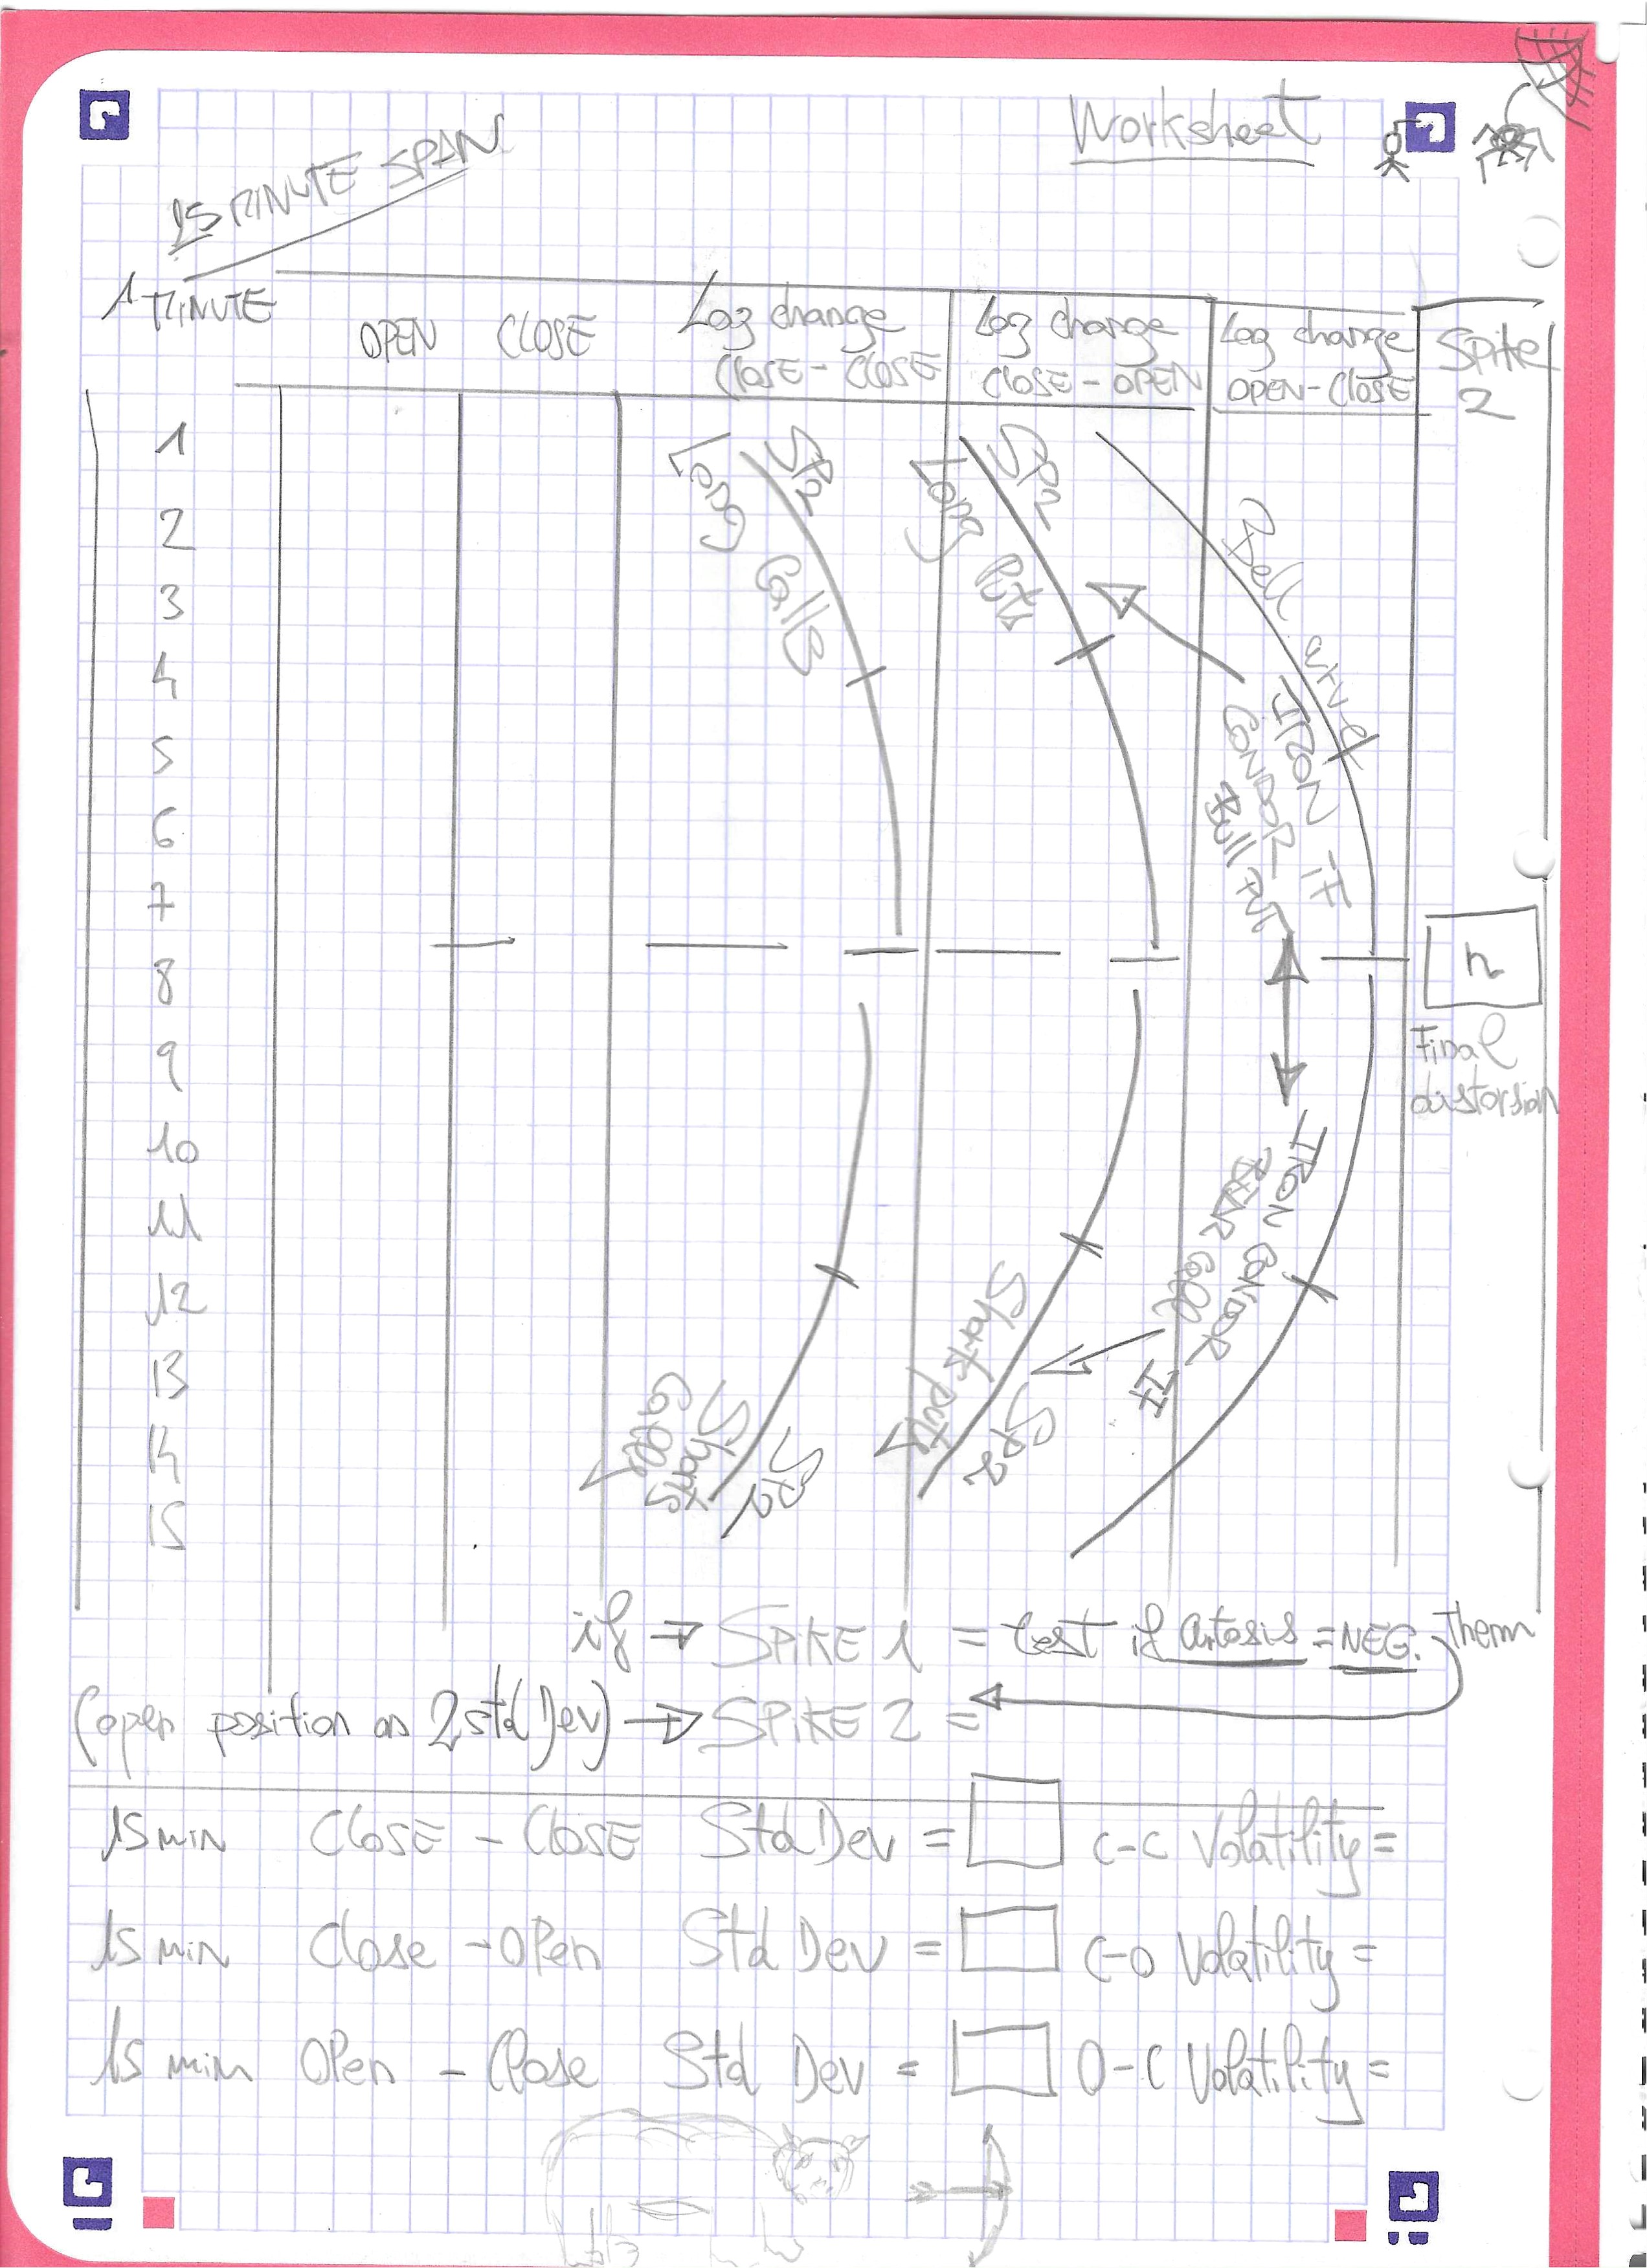 Worksheet
15 MINUTE SPAN
1 MINUTE
OPEN
CLOSE
Log change
CLOSE - CLOSE
Log change
CLOSE - OPEN
Log change
OPEN - CLOSE
Spike
2
1
2
3
4
5
6
7
8
9
10
11
12
13
14
15
SP2
Long Calls
SP2
Long Puts
Bell curve
IRON
CONDOR if
Bull Put
n
Final
distorsion
IRON CONDOR
BEAR Call
If
Short puts
SP2
Short
Calls
SP2
if → SPIKE 1 = test if Curtosis = NEG. Then
(open position on 2 std Dev) → SPIKE 2 =
15 min Close - Close Std Dev = C-C Volatility =
15 min Close - Open Std Dev = C-O Volatility =
15 min Open - Close Std Dev = O-C Volatility =